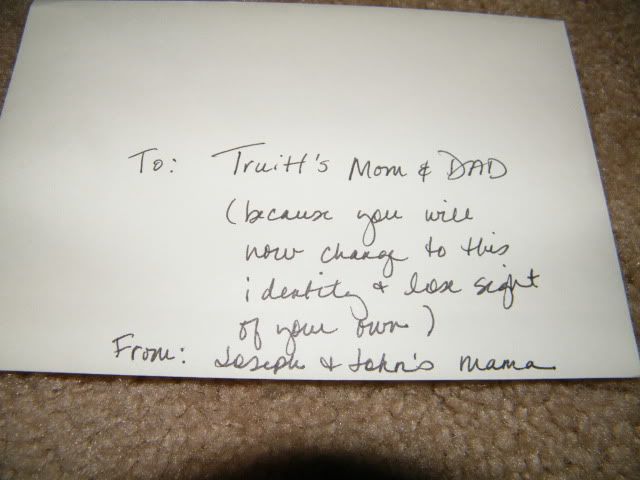 To: Truitt's Mom & DAD
(because you will
now change to this
identity & lose sight
of your own)
From: Joseph & John's mama